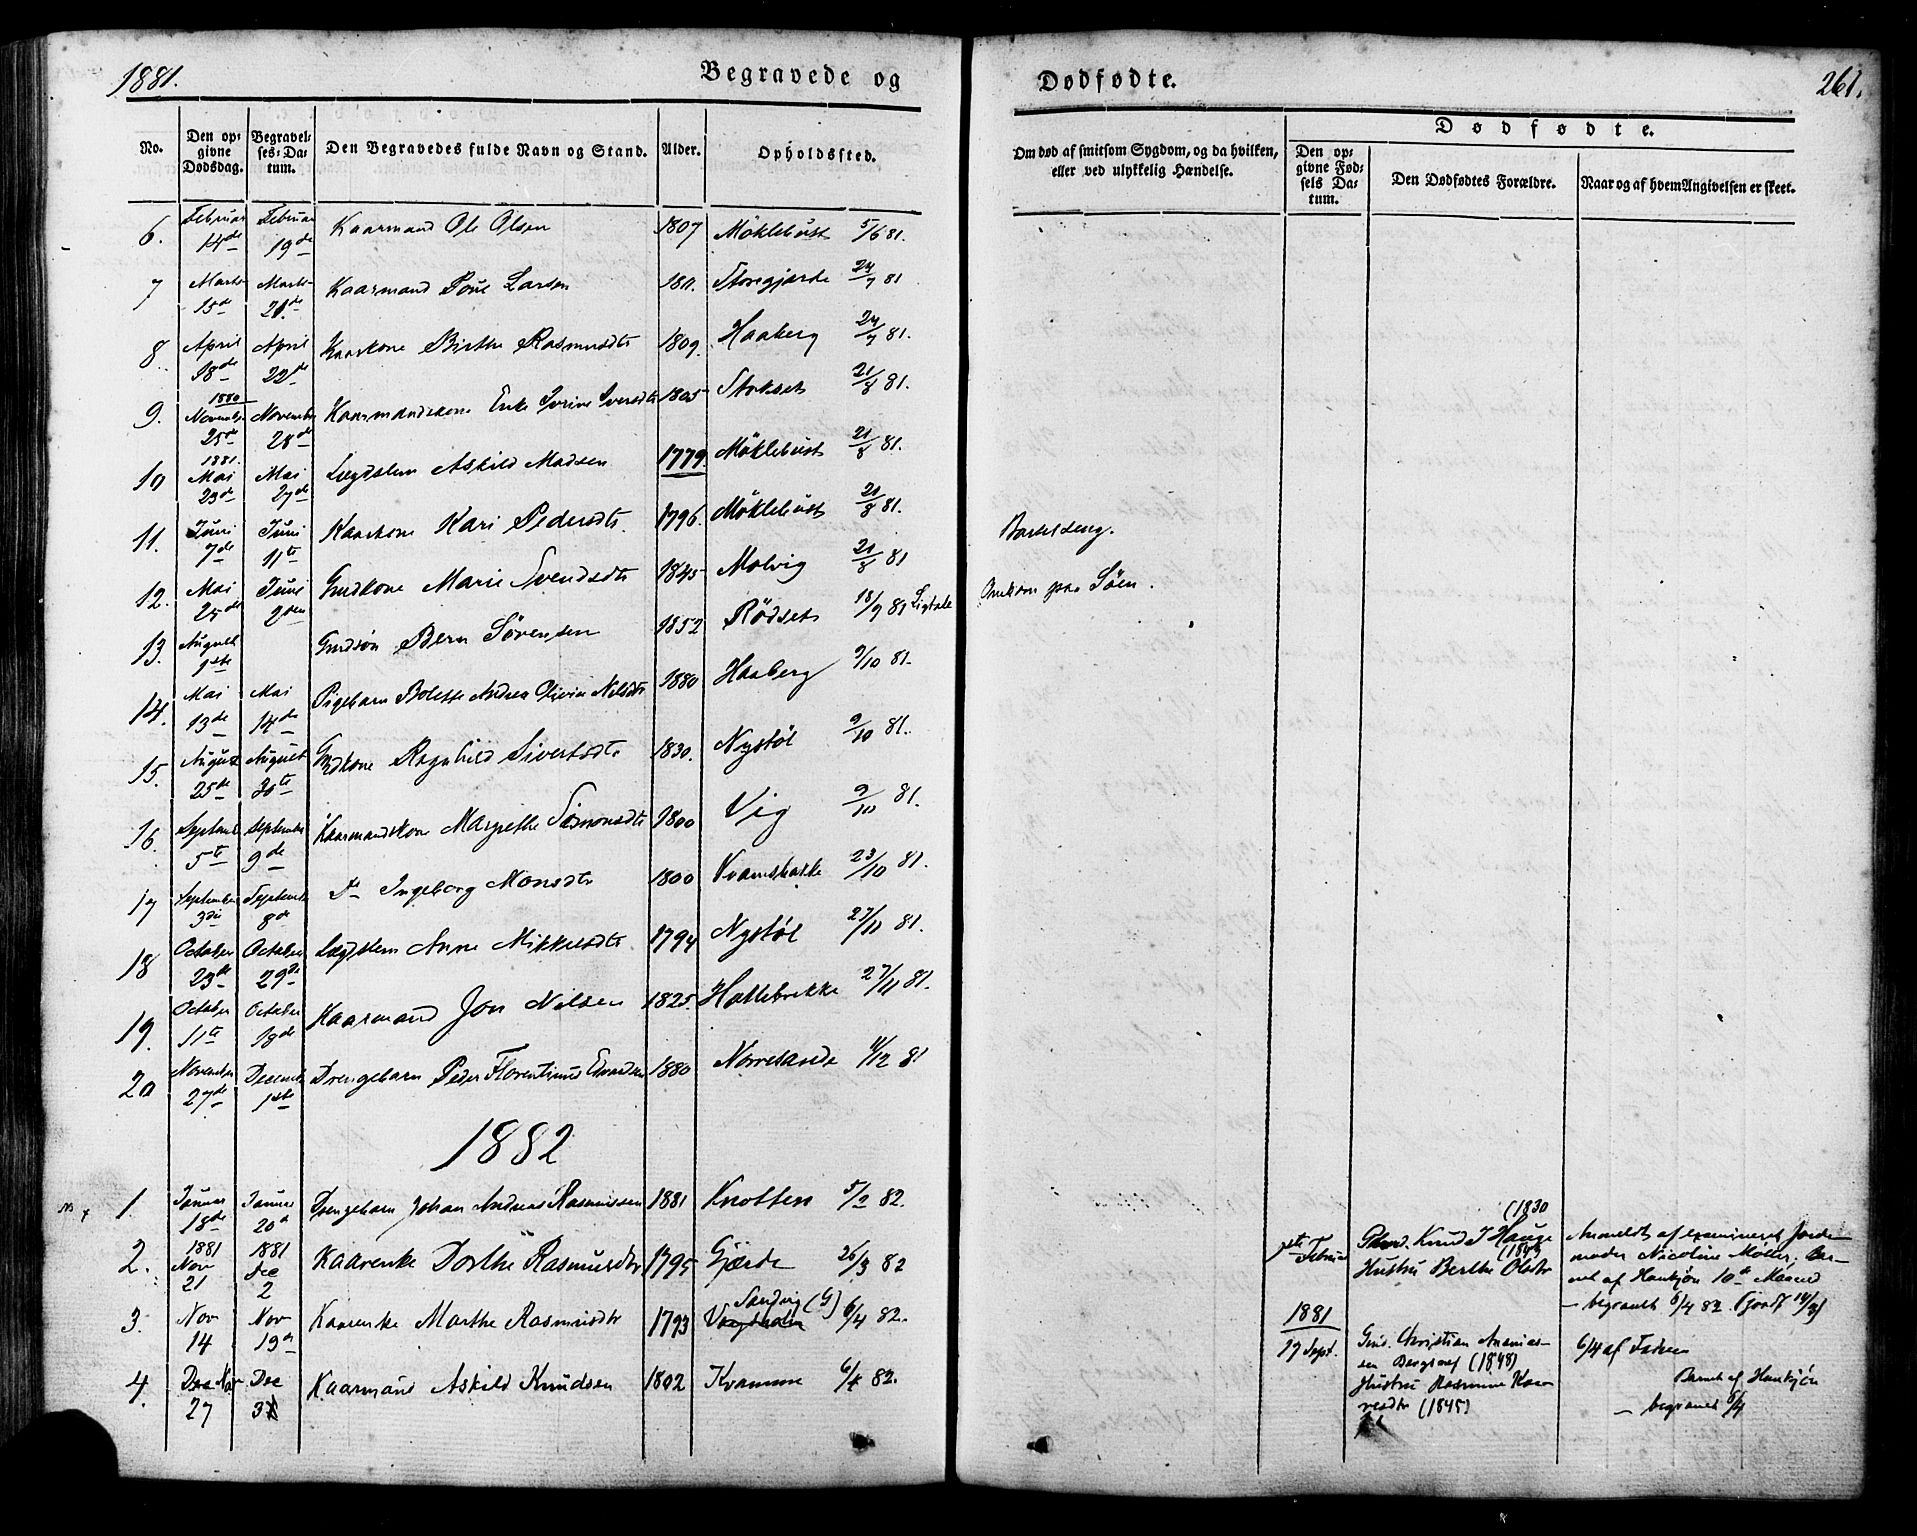 1881.
Begravede og
Dødfødte.
261.
No.
Den opgivne Dødsdag.
Begravelses-Datum.
Den Begravedes fulde Navn og Stand.
Alder.
Opholdssted.
Om død af smitsom Sygdom, og da hvilken, eller ved ulykkelig Hændelse.
Dødfødte.
Den opgivne Fødsels Datum.
Den Dødfødtes Forældre.
Naar og af hvem Angivelsen er skeet.
6. Februar 14de Februar 19de Kaarmand Ole Olsen 1807 Möklebust 5/6 81.
7 Marts 15de Marts 21de Kaarmand Poul Larsen 1811. Storegjærde 24/7 81
8 April 18de April 22de Kaarkone Birthe Rasmusdtr 1809. Haaberg 24/7 81.
9. 1880 November 25de November 28de Kaarmandskone Iversdtr 1805 Stokset 21/8 81.
10 1881. Mai 23de Mai 27de Lægdslem Askild Madsen 1779. Möklebust 21/8 81.
11. Juni 7de Juni 11te Kaarkone Kari Pedersdtr 1796. Möklebust 21/8 81.
12. Mai 25de Juni 2den Grdkone Marie Svendsdtr 1845 Molvig 21/8 81 Barselseng.
13. August 1ste Grdsøn Bern Sörensen 1852 Rödset 18/9 81 Ligtale Omkom paa Söen.
14. Mai 13de Mai 14de Pigebarn Bolette Andrea Olivia Nilsdtr 1880 Haaberg 9/10 81.
15. August 25de August 30te Grdkone Ragnhild Sivertsdtr 1830. Nystöl 9/10 81.
16. September 5te September 9de Kaarmandskone Margrethe Simonsdtr 1800 Vig 9/10 81.
17 September 3die September 8de Do Ingeborg Monsdtr 1800 23/10 81.
18 October 23de October 29de Lægdslem Anne Mikkelsdtr 1794 Nystöl 27/11 81.
19. October 11te October 18de Kaarmand Jon Nilsen 1825. Hattebrekke 27/11 81.
20 November 27de December 1ste Drengebarn Peder Florentinus 1880 Norresande 11/12 81
1882
1. Januar 18de Januar 20de Drengebarn Johan Andreas Rasmussen 1881 Knotten 5/2 82.
2. 1881 Nov 21 1881 Dec 2 Kaarenke Dorthe Rasmusdtr 1795 Gjærde 26/3 82
3. Nov 14 Nov 19de Kaarenke Marthe Rasmusdtr 1793 Sandvig (G) 6/4 82.
4. Nov 27 Dec 3 Kaarmand Askild Knudsen 1802 Kvamme 6/4 82.
Februar
Knud J Hauge (1830
Hustru Berthe Olsdtr
Anmeldt af examineret Jordemoder Nicoline Möller. Barnet af Hankjøn 10de Maaned
– begravet 6/4 82
1881
17 Sept.
Christian Ananiassen (1848)
Hustru Rasmine (1845)
6/4 af Faderen
Barnet af Hankjön
– begravet 6/4